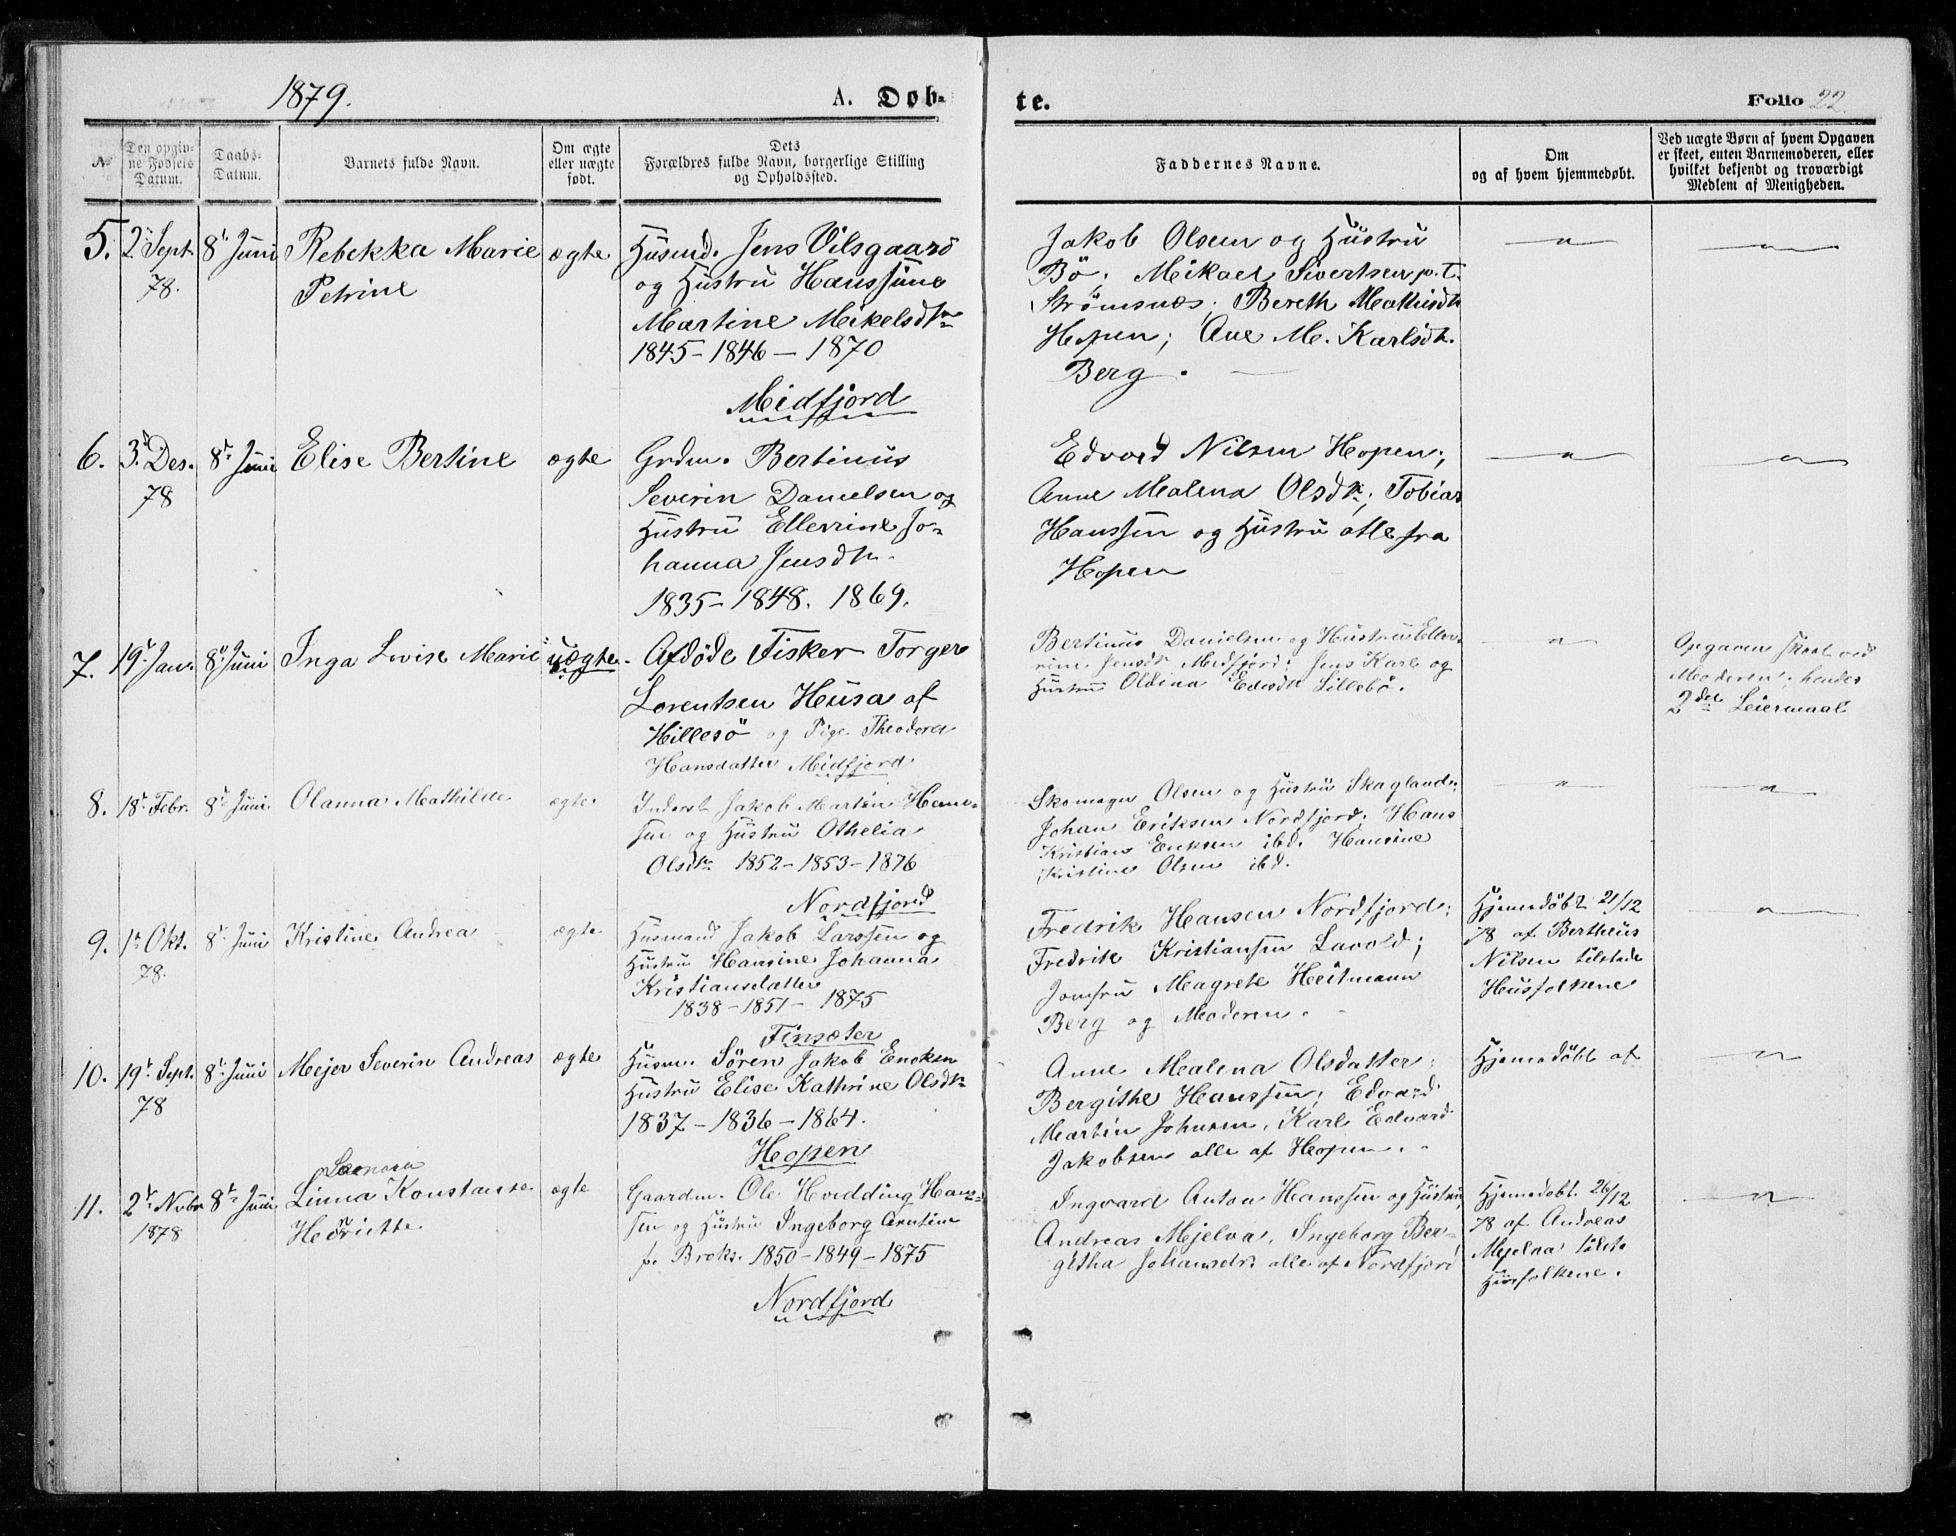 1879.
A. Døb-
te.
Folio 22.
No
Den opgiv-
ne Fødsels
Datum.
Daabs-
Datum.
Barnets fulde Navn.
Om ægte
eller uægte
født.
Dets
Forældres fulde Navn, borgerlige Stilling
og Opholdssted.
Faddernes Navne.
Om
og af hvem hjemmedøbt.
Ved uægte Børn af hvem Opgaven
er skeet, enten Barnemoderen, eller
hvilket bekjendt og troværdigt
Medlem af Menigheden.
5.
2 Sept.
78.
8 Juni
Rebekka Marie
Petrine
ægte
Husmd. Jens Vilsgaard
og Hustru Hanssine
Martine Mikelsdtr
1845 - 1846 - 1870
Midfjord
Jakob Olsen og Hustru
Bö. Mikael Sivertsen p.t.
Strömsnæs; Bereth Mathisdtr
Hopen; Ane M. Karlsdtr.
Berg.
6.
3. Des.
78
8 Juni
Elise Bertine
ægte
Grdm. Bertinus
Severin Danielsen og
Hustru Ellevrine Jo-
hanna Jensdtr.
1835 - 1848. 1869.
Edvard Nilsen Hopen;
Anne Malena Olsdtr; Tobias
Hanssen og Hustru alle fra
Hopen
7.
19 Jan.
8 Juni
Inga Lovise Marie
uægte.
Afdøde Fisker Torger
Lorentsen Husa af
Hillesö og Pige Theodora
Hansdatter Midfjord
Bertinus Danielsen og Hustru Ellev-
rine Jensdtr Midfjord; Jens Karl og
Hustru Oldina Lillebö.
Opgaven skeet ved
Moderen; hendes
2det Leiermaal
8.
18 Febr.
8 Juni
Olanna Mathilde
ægte
Inderst Jakob Martin Hans-
sen og Hustru Othelia
Olsdtr 1852 - 1853 - 1876
Nordfjord
Skomager Olsen og Hustru Skagland;
Johan Eriksen Nordfjord; Hans
Kristian Eriksen ibd. Hansine
Kristine Olsen ibd.
9.
1 Okt.
78.
8 Juni
Kristine Andrea
ægte
Husmand Jakob Larssen og
Hustru Hansine Johanna
Kristiansdatter
1838 - 1851 - 1875
Finsæter
Fredrik Hansen Nordfjord;
Fredrik Kristiansen Lavold;
Jomfru Magrete Heitmann
Berg og Moderen.
Hjemedöbt 21/12
78 af Bertheus
Nilsen tilstede
Husfolkene
10.
19 Sept.
78
8 Juni
Mejer Severin Andreas
ægte
Husm. Sören Jakob Enoksen
Hustru Elise Kathrine Olsdtr
1837 - 1836 - 1864.
Hopen
Anne Malena Olsdatter;
Bergithe Hanssen; Edvard
Martin Johnsen, Karl Edvard
Jakobsen alle af Hopen.
Hjemedöbt af
11.
2 Nvbr
1878
8 Juni
Leonora
Linna Konstanse
Henriette
ægte
Gaardm. Ole Hvidding Hans-
sen og Hustru Ingeborg Arntine
f. Broks. 1850 - 1849 - 1875
Nordfjord
Ingvard Anton Hanssen og Hustru;
Andreas Mjelva, Ingeborg Ber-
githa Johansdr. alle af Nordfjord
Hjemedöbt 26/12
78 af Andreas
Mjelva tilst.
Husfolkene.